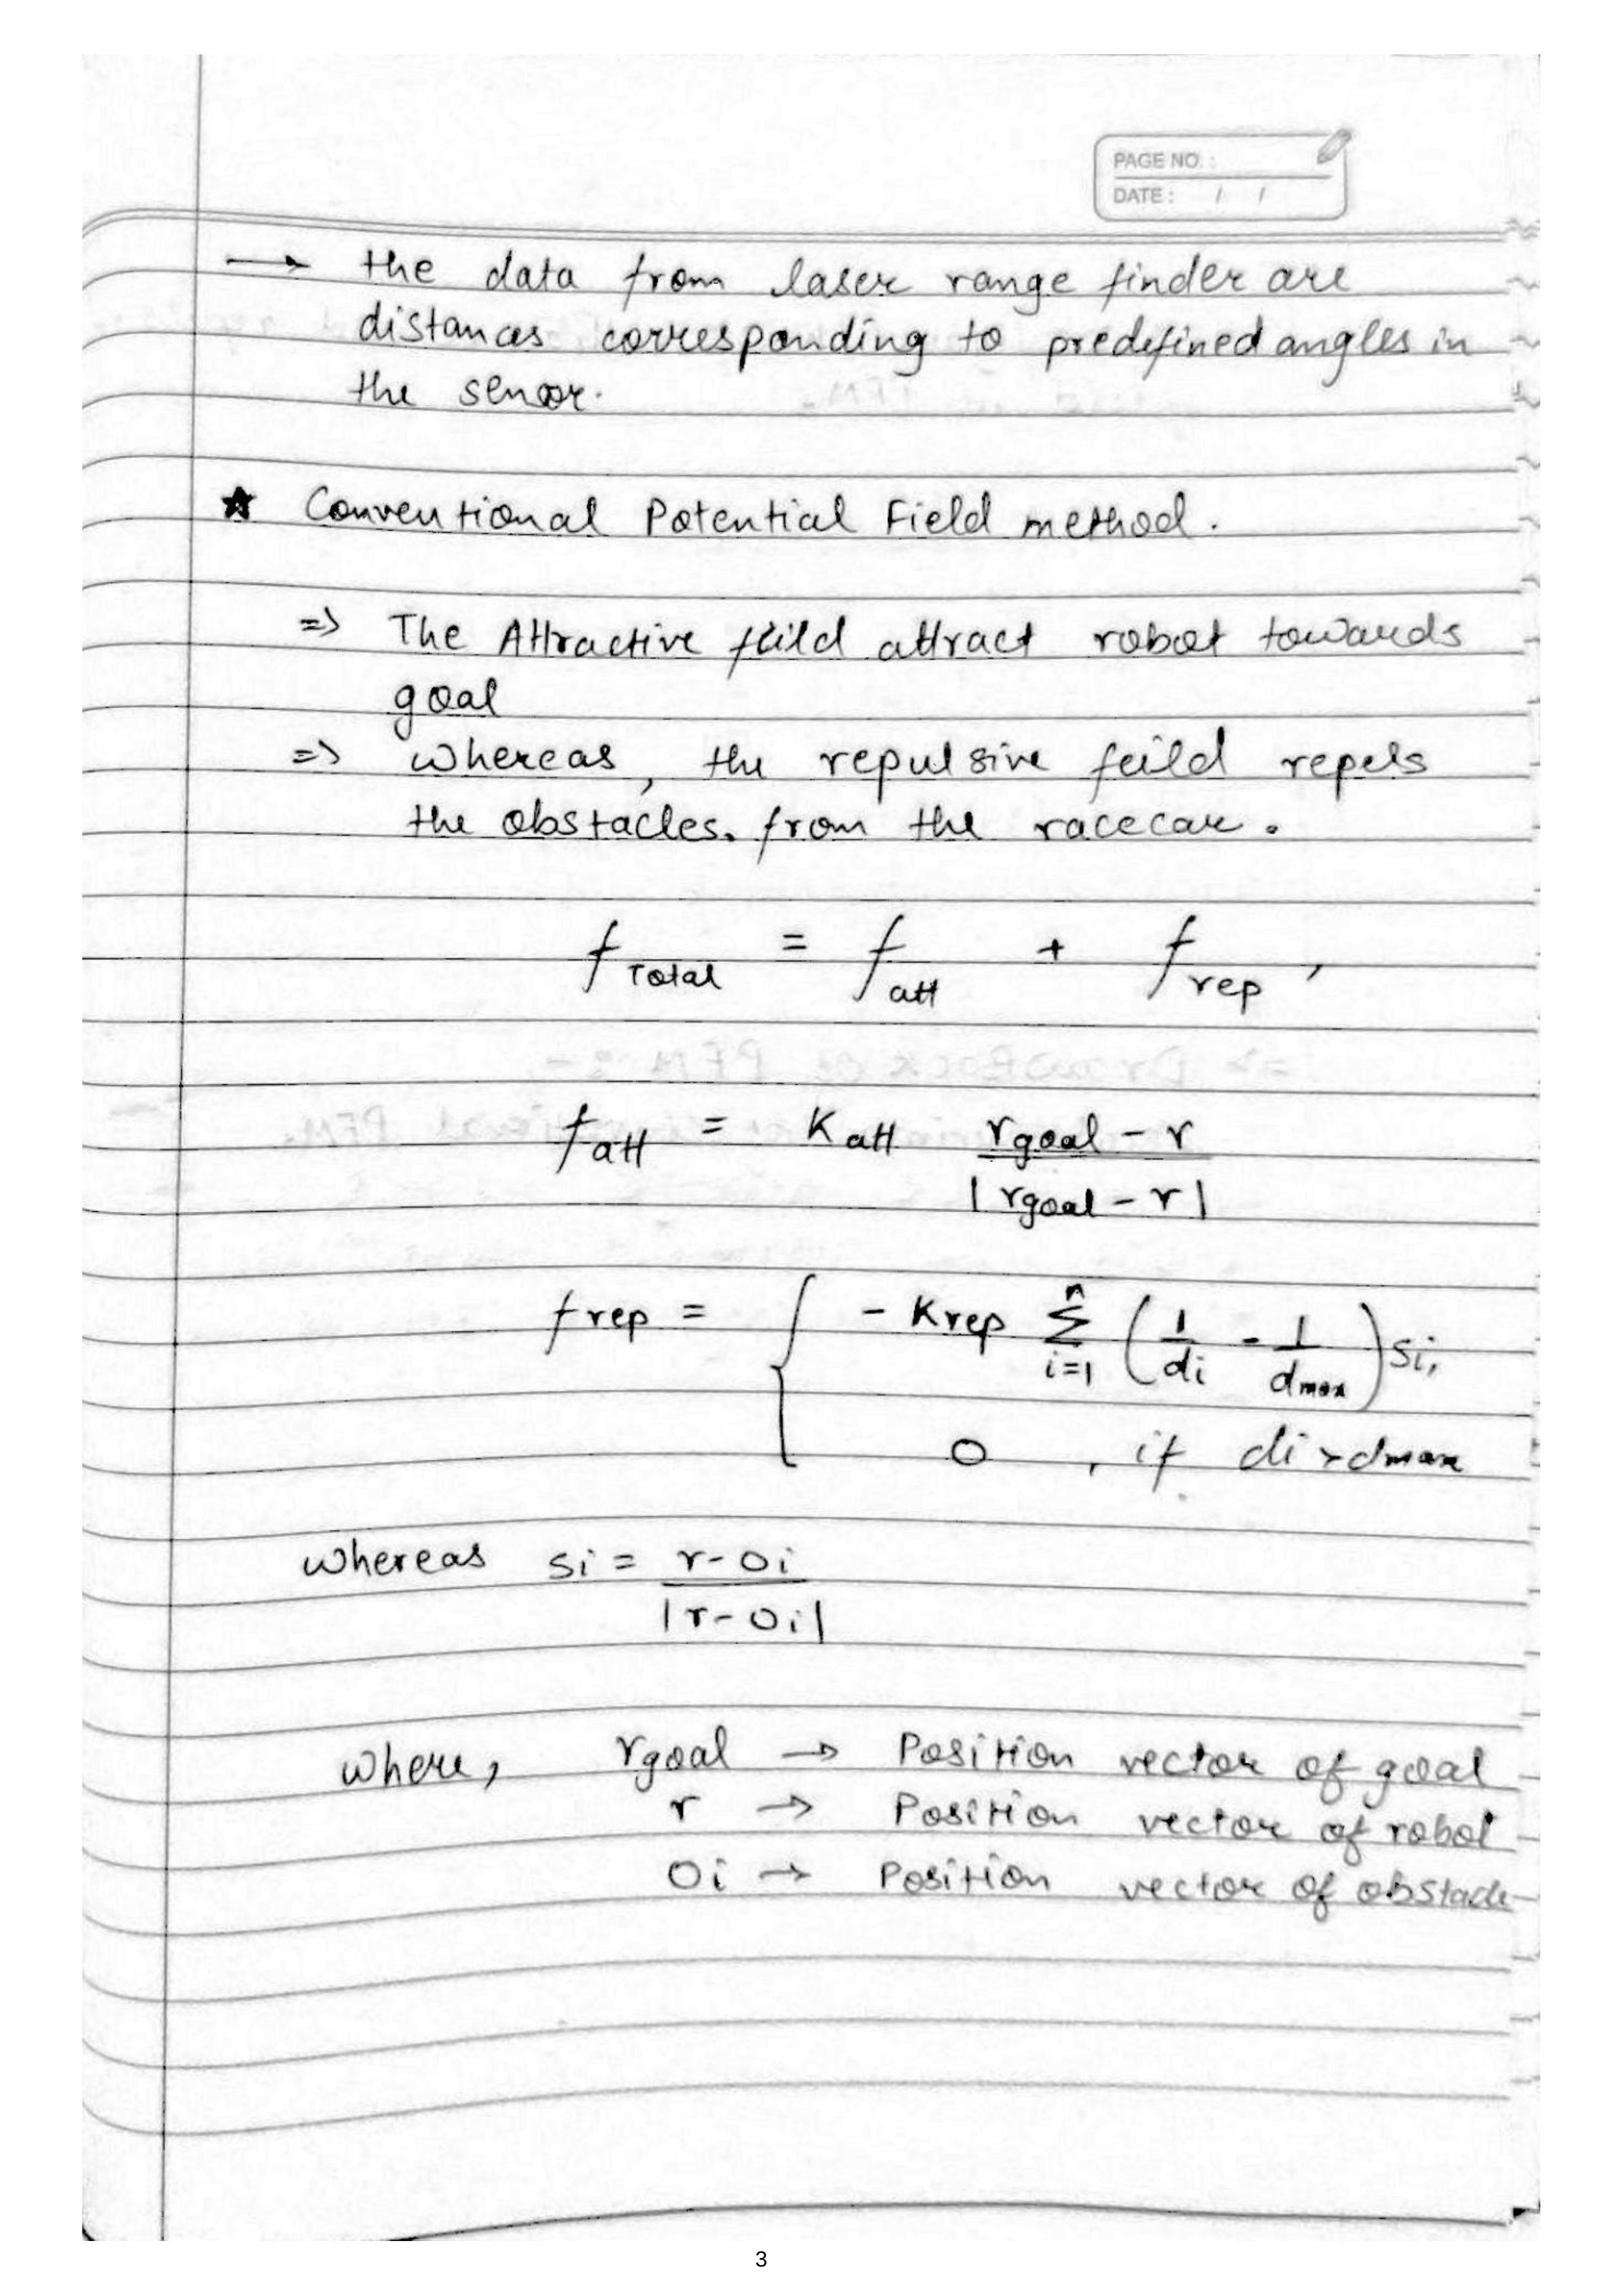 PAGE NO. :
DATE : / /
→ the data from laser range finder are
distances corresponding to predefined angles in
the senor.
★ Conventional Potential Field method.
=> The Attractive feild attract robot towards
goal
=> whereas, the repulsive feild repels
the obstacles. from the racecar.
f Total = f att + f rep ,
f att = K att rgoal - r
| rgoal - r |
f rep = { - Krep n Σ i=1 ( 1/di - 1/dmax ) si,
0 , if di > dmax
whereas si = r - oi
| r - oi |
where, rgoal → Position vector of goal
r → Position vector of robot
Oi → Position vector of obstacle
3